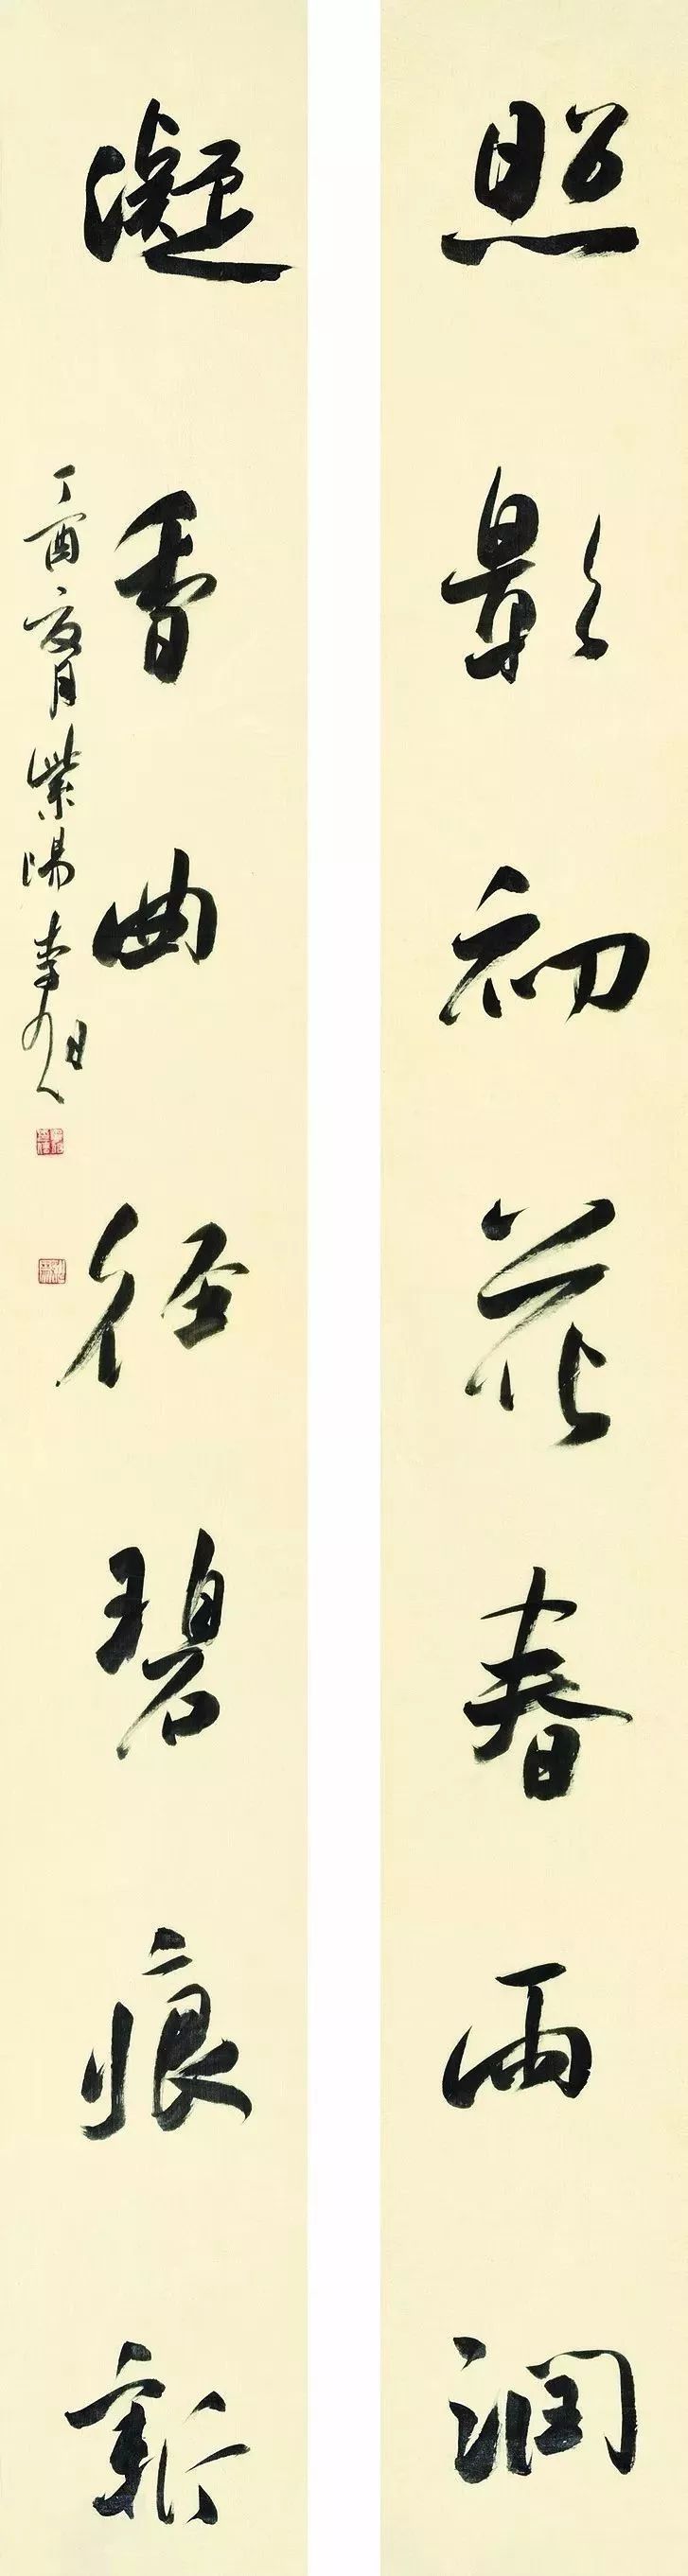 照影初花春雨润
凝香曲径碧痕新
丁酉夏月紫陽李